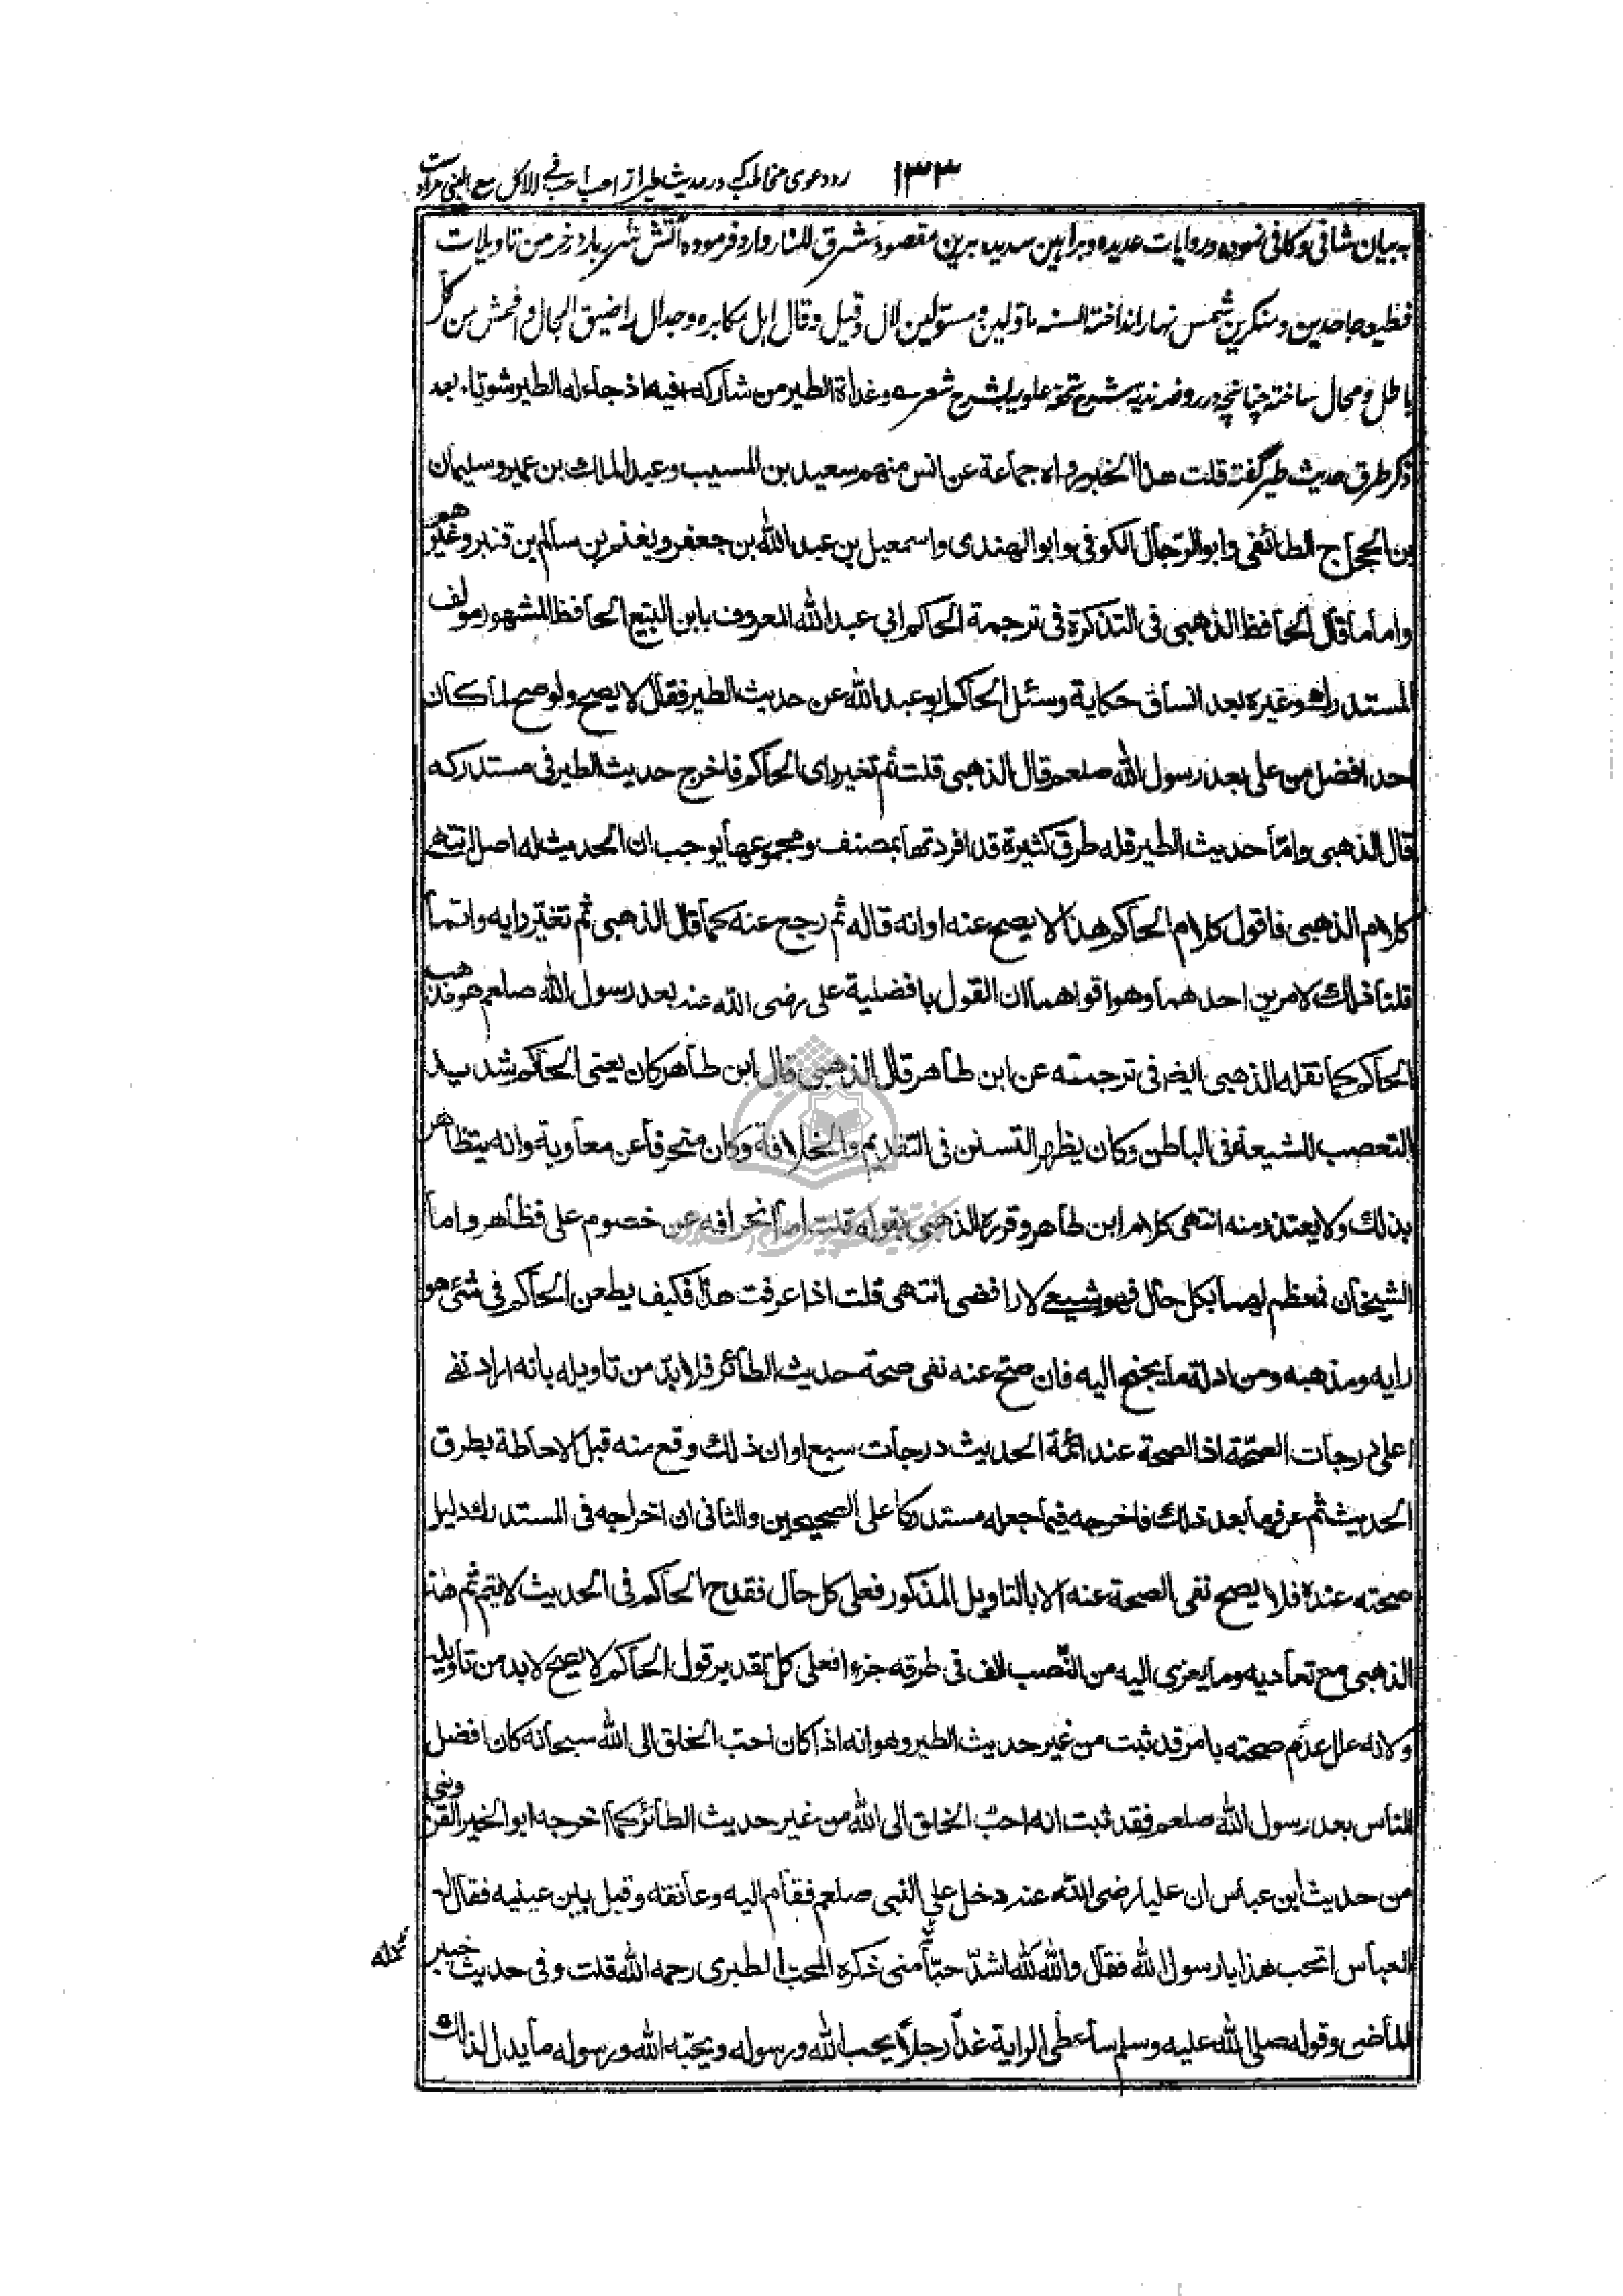 ۱۳۳ رد دعوی مخاطب که در حدیث طیر از احب احب فی الاکل مع النبی مراد ست
به بیان شافی و کافی نموده و روایات عدیده و براهین سدیده برین مقصود مشرق للنار وارد فرموده آتش شرربار در خرمن تاویلات
فظیعه جاحدین و منکرین شمس نهار انداخته السنه ماولین و مسئولین لال و قیل و قال اهل مکابره و جدال را ضیق المجال و افحش من کل
باطل و محال ساخته چنانچه در روضه ندیه شرح تحفه علویه بشرح شعر وغداة الطیر من شارکه فیه اذ جاء له الطیر شویا بعد
ذکر طرق حدیث طیر گفته قلت هذا الخبر رواه جماعة عن انس منهم سعید بن المسیب وعبد الملك بن عمیر وسلیمان
بن الحجاج الطائفی وابو الرجال الکوفی وابو الهندی واسمعیل بن عبد الله بن جعفر ویغنم بن سالم بن قنبر وغیرهم
واما ما قال الحافظ الذهبی فی التذکرة فی ترجمة الحاکم ابی عبد الله المعروف بابن البیع الحافظ المشهور مولف
المستدرك وغیره بعد انساق حکایة وسئل الحاکم ابو عبد الله عن حدیث الطیر فقال لا یصح ولو صح لما کان
احد افضل من علی بعد رسول الله صلعم قال الذهبی قلت ثم تغیر رای الحاکم فاخرج حدیث الطیر فی مستدرکه
قال الذهبی واما حدیث الطیر فله طرق کثیرة قد افردتها بمصنف ومجموعها یوجب ان الحدیث له اصل انتهی
کلام الذهبی فاقول کلام الحاکم هذا لا یصح عنه او انه قاله ثم رجع عنه کما قال الذهبی ثم تغیر رایه وانما
قلنا ذلك لامرین احدهما وهو اقواهما ان القول بافضلیة علی رضی الله عنه بعد رسول الله صلعم هو مذهب
الحاکم کما نقله الذهبی ایضر فی ترجمته عن ابن طاهر قال الذهبی قال ابن طاهر کان یعنی الحاکم شدید
التعصب للشیعة فی الباطن وکان یظهر التسنن فی التقدیم والخلافة وکان منحرفا عن معاویة وانه یتظاهر
بذلك ولا یعتذر منه انتهی کلام ابن طاهر وقرره الذهبی بقوله قلت اما انحرافه عن خصوم علی فظاهر واما
الشیخان فمعظم لهما بکل حال فهو شیعی لا رافضی انتهی قلت اذا عرفت هذا فکیف یطعن الحاکم فی شئ هو
رایه ومذهبه ومن ادلة ما یجنح الیه فان صح عنه نفی صحة حدیث الطائر فلا بد من تاویله بانه اراد نفی
اعلی درجات الصحة اذ الصحة عند ائمة الحدیث درجات سبع او ان ذلك وقع منه قبل الاحاطة بطرق
الحدیث ثم عرفها بعد ذلك فاخرجه فیما جعله مستدرکا علی الصحیحین والثانی ان اخراجه فی المستدرك دلیل
صحته عنده فلا یصح نفی الصحة عنه الا بالتاویل المذکور فعلی کل حال فقدح الحاکم فی الحدیث لا یتم ثم هذا
الذهبی مع تعادیه وما یعزی الیه من النصب الف فی طرقه جزءا فعلی کل تقدیر قول الحاکم لا یصح لا بد من تاویله
ولانه علل عدم صحته بامر قد ثبت من غیر حدیث الطیر وهو انه اذا کان احب الخلق الی الله سبحانه کان افضل
الناس بعد رسول الله صلعم فقد ثبت انه احب الخلق الی الله من غیر حدیث الطائر کما اخرجه ابو الخیر القزوینی
من حدیث ابن عباس ان علیا رضی الله عنه دخل علی النبی صلعم فقام الیه وعانقه وقبل بین عینیه فقال له
العباس اتحب هذا یا رسول الله فقال والله لله اشد حبا منی ذکره المحب الطبری رحمه الله قلت وفی حدیث خیبر
الماضی وقوله صلی الله علیه وسلم ساعطی الرایة غدا رجلا یحب الله ورسوله ویحبه الله ورسوله ما یدل لذلك